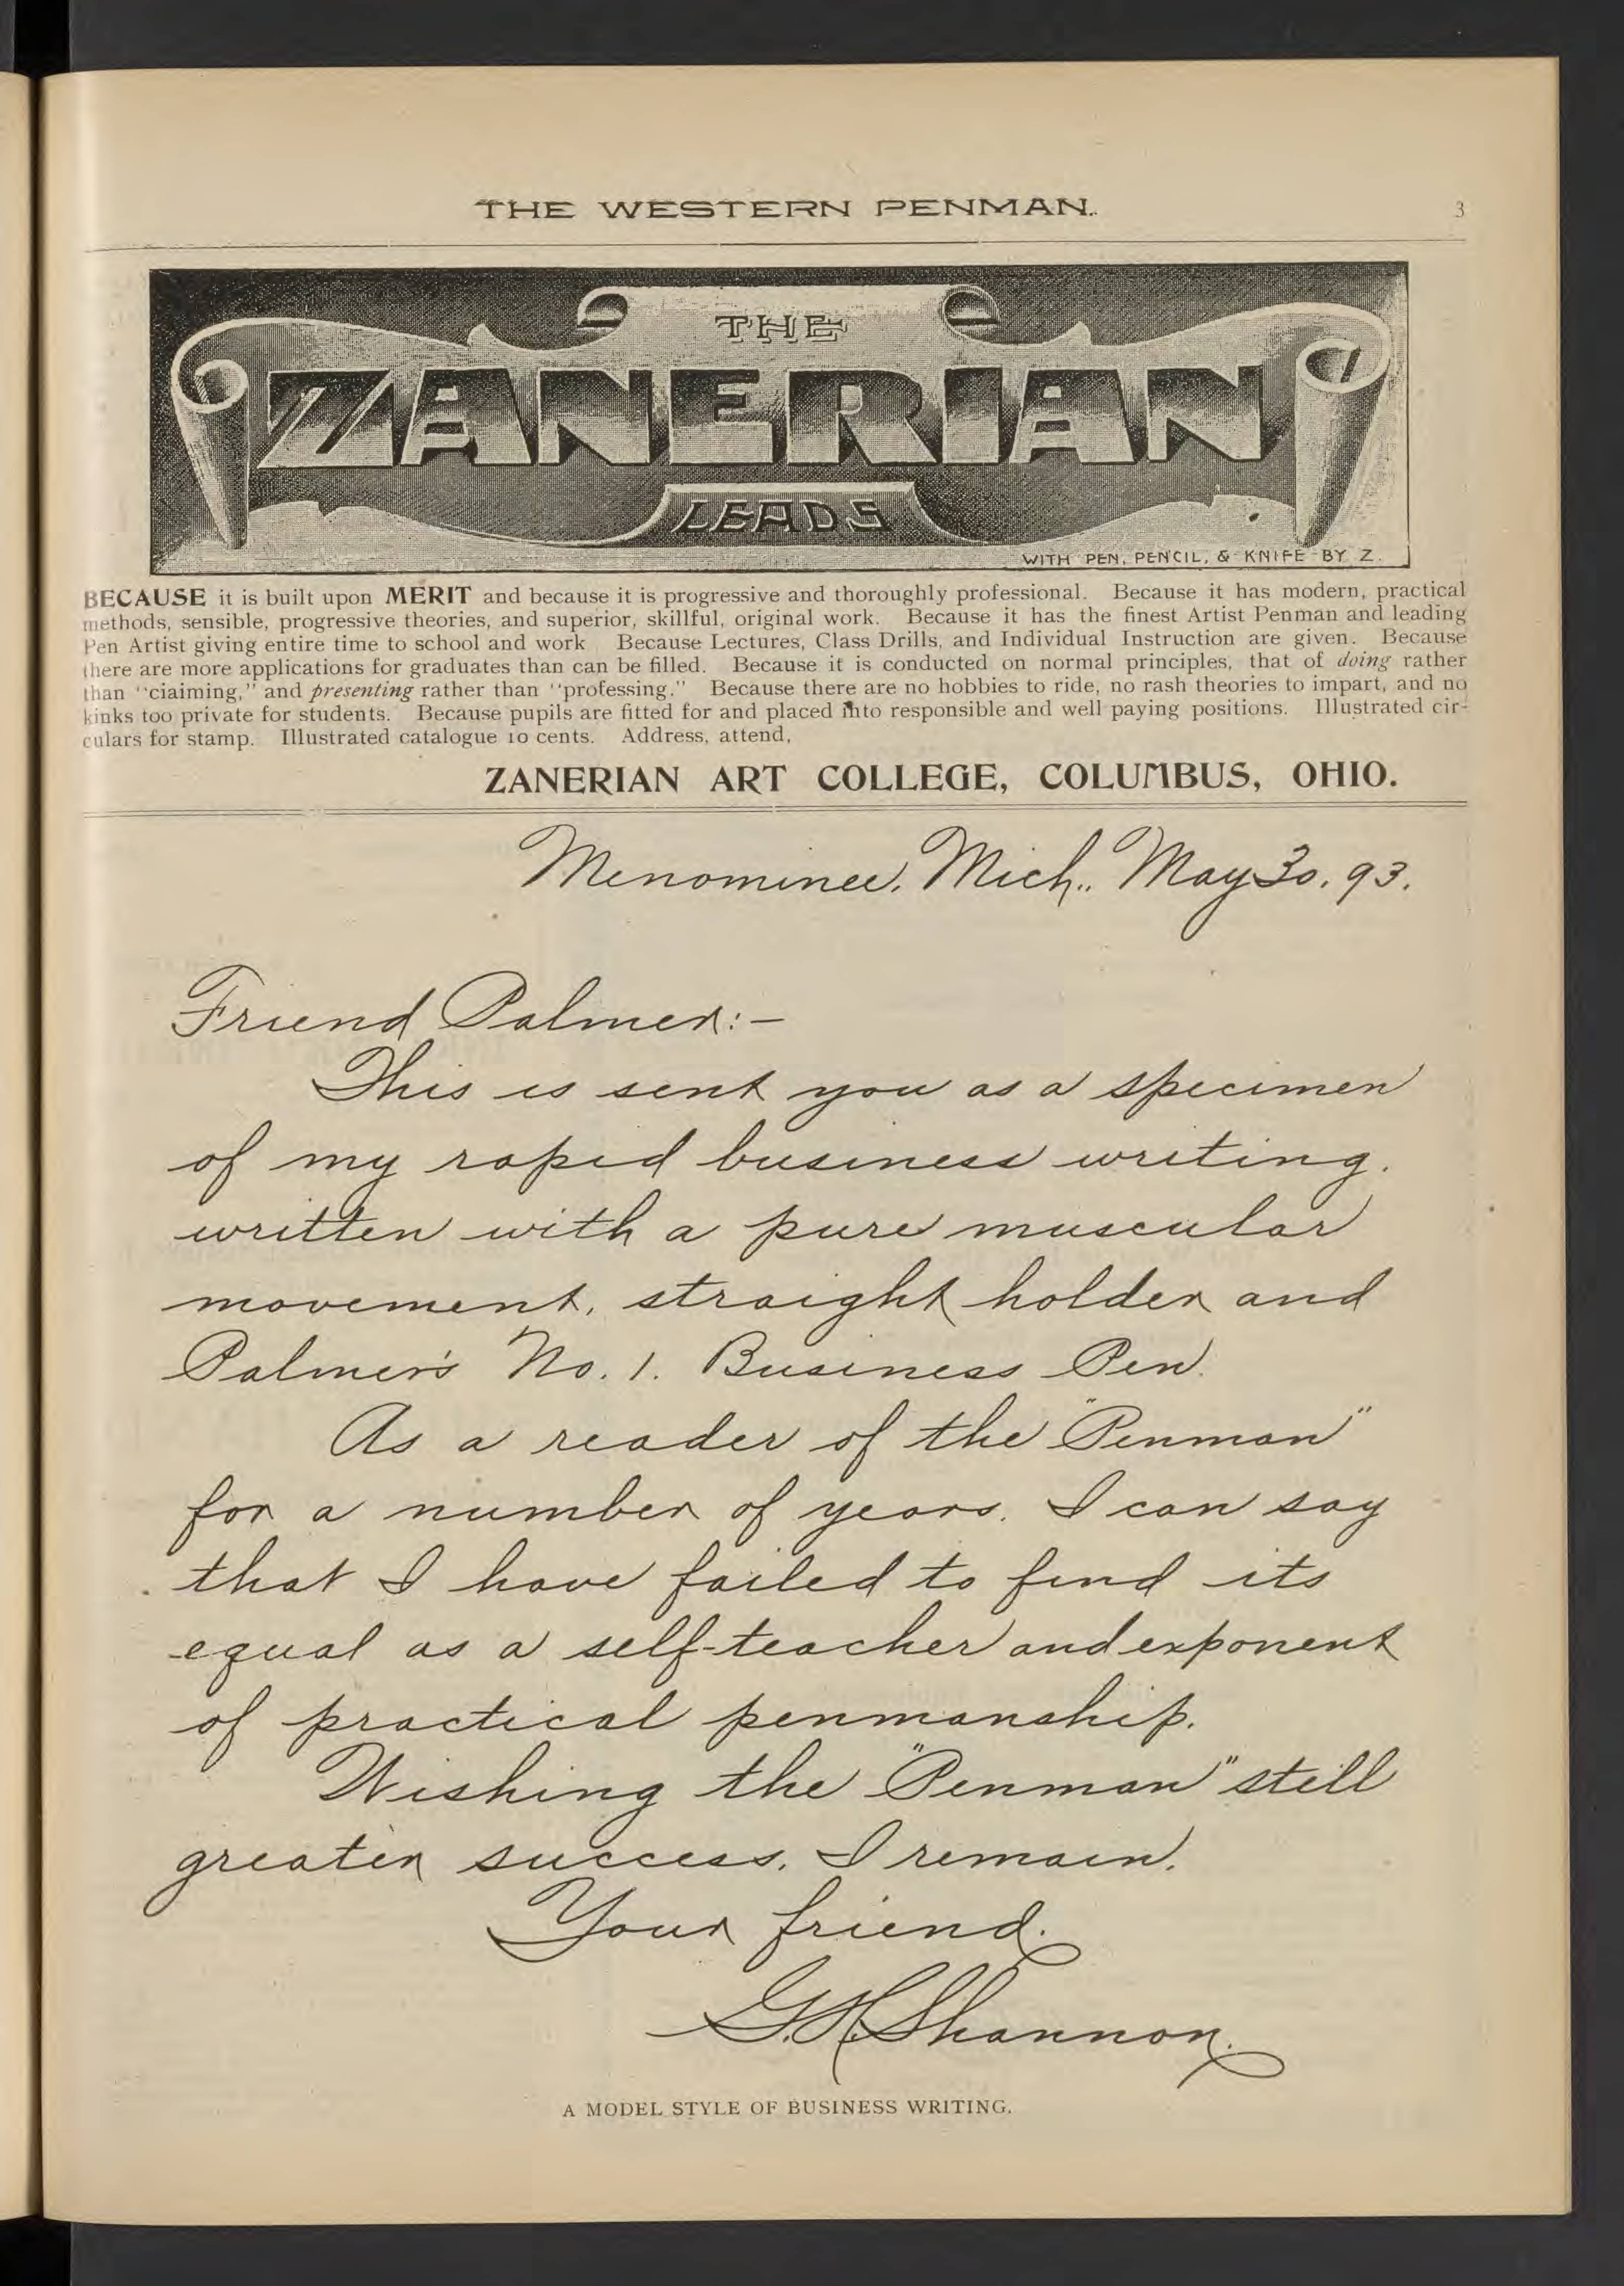 THE WESTERN PENMAN.
3
THE
ZANERIAN
LEADS
WITH PEN, PENCIL, & KNIFE BY Z.
BECAUSE it is built upon MERIT and because it is progressive and thoroughly professional. Because it has modern, practical
methods, sensible, progressive theories, and superior, skillful, original work. Because it has the finest Artist Penman and leading
Pen Artist giving entire time to school and work Because Lectures, Class Drills, and Individual Instruction are given. Because
there are more applications for graduates than can be filled. Because it is conducted on normal principles, that of doing rather
than "ciaiming," and presenting rather than "professing." Because there are no hobbies to ride, no rash theories to impart, and no
kinks too private for students. Because pupils are fitted for and placed into responsible and well paying positions. Illustrated cir-
culars for stamp. Illustrated catalogue 10 cents. Address, attend,
ZANERIAN ART COLLEGE, COLUMBUS, OHIO.
Menominee, Mich., May 30, 93.
Friend Palmer:-
This is sent you as a specimen
of my rapid business writing,
written with a pure muscular
movement, straight holder and
Palmer's No. 1. Business Pen.
As a reader of the "Penman"
for a number of years, I can say
that I have failed to find its
equal as a self-teacher and exponent
of practical penmanship.
Wishing the "Penman" still
greater success, I remain,
Your friend,
G.H. Shannon.
A MODEL STYLE OF BUSINESS WRITING.